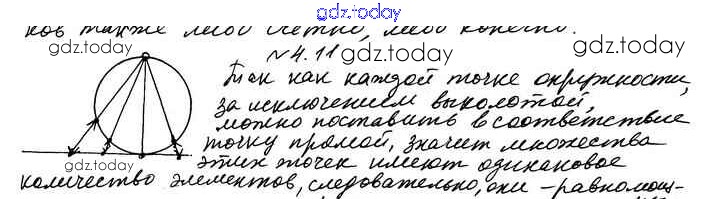 gdz.today
ков также либо счетно, либо конечно.
gdz.today
№4.11 gdz.today
Так как каждой точке окружности,
за исключением выколотой,
gdz.today
можно поставить в соответствие
точку прямой, значит множества
gdz.today
этих точек имеют одинаковое
количество элементов, следовательно, они - равномощ-